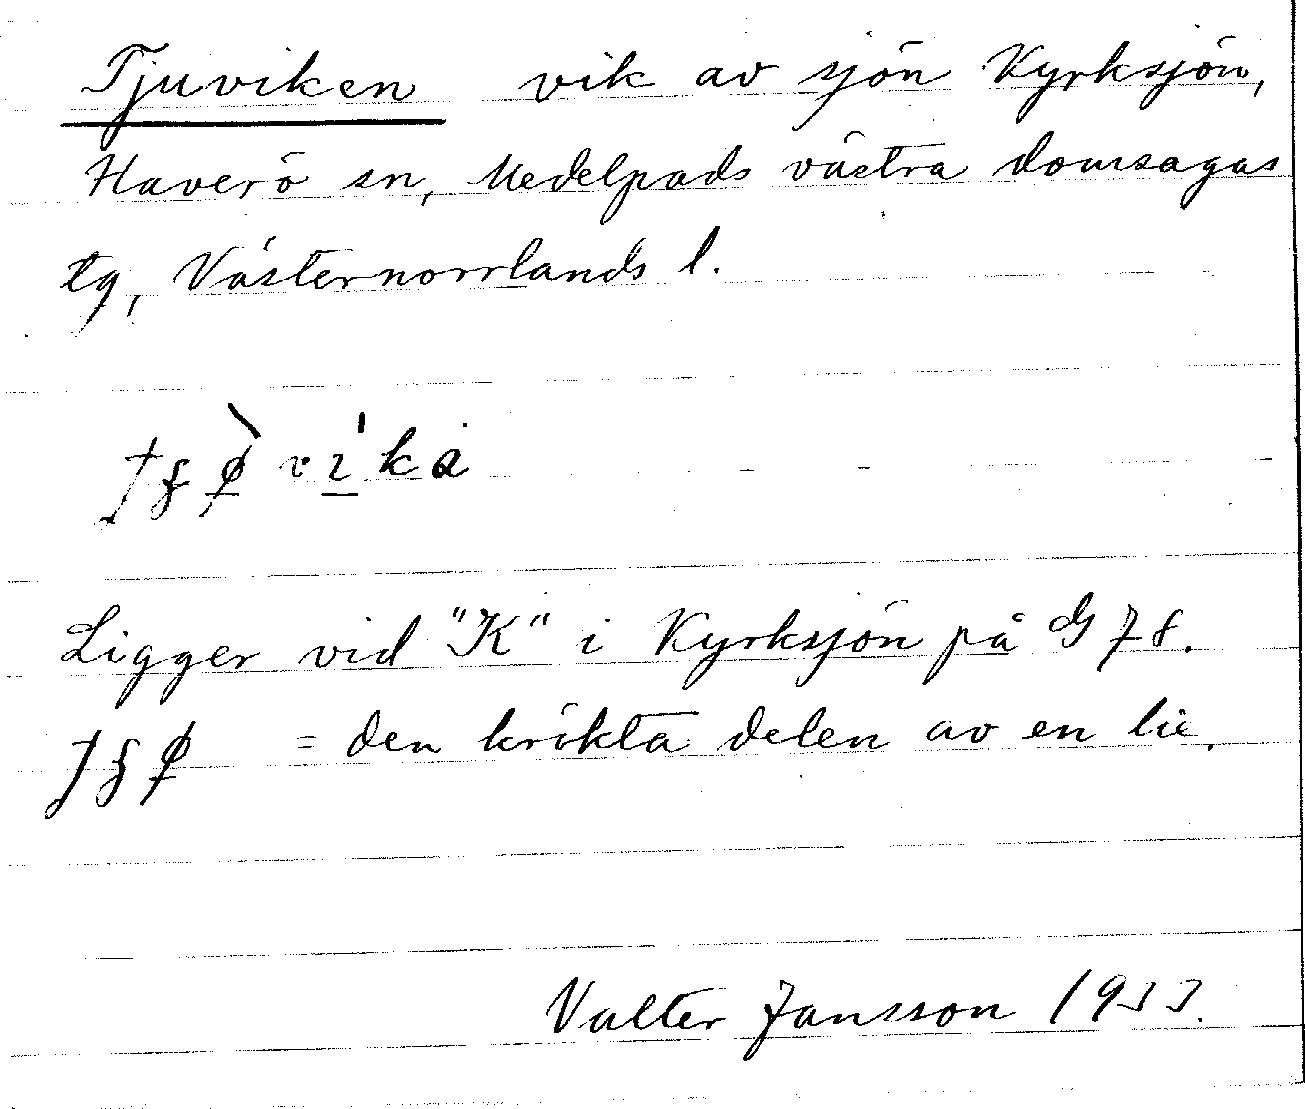 Tjuviken vik av sjön Kyrksjön,
Haverö sn, Medelpads västra domsagas
tg, Västernorrlands l.
Ligger vid "K" i Kyrksjön på G 78.
= den krökta delen av en lie.
Valter Jansson 1933.